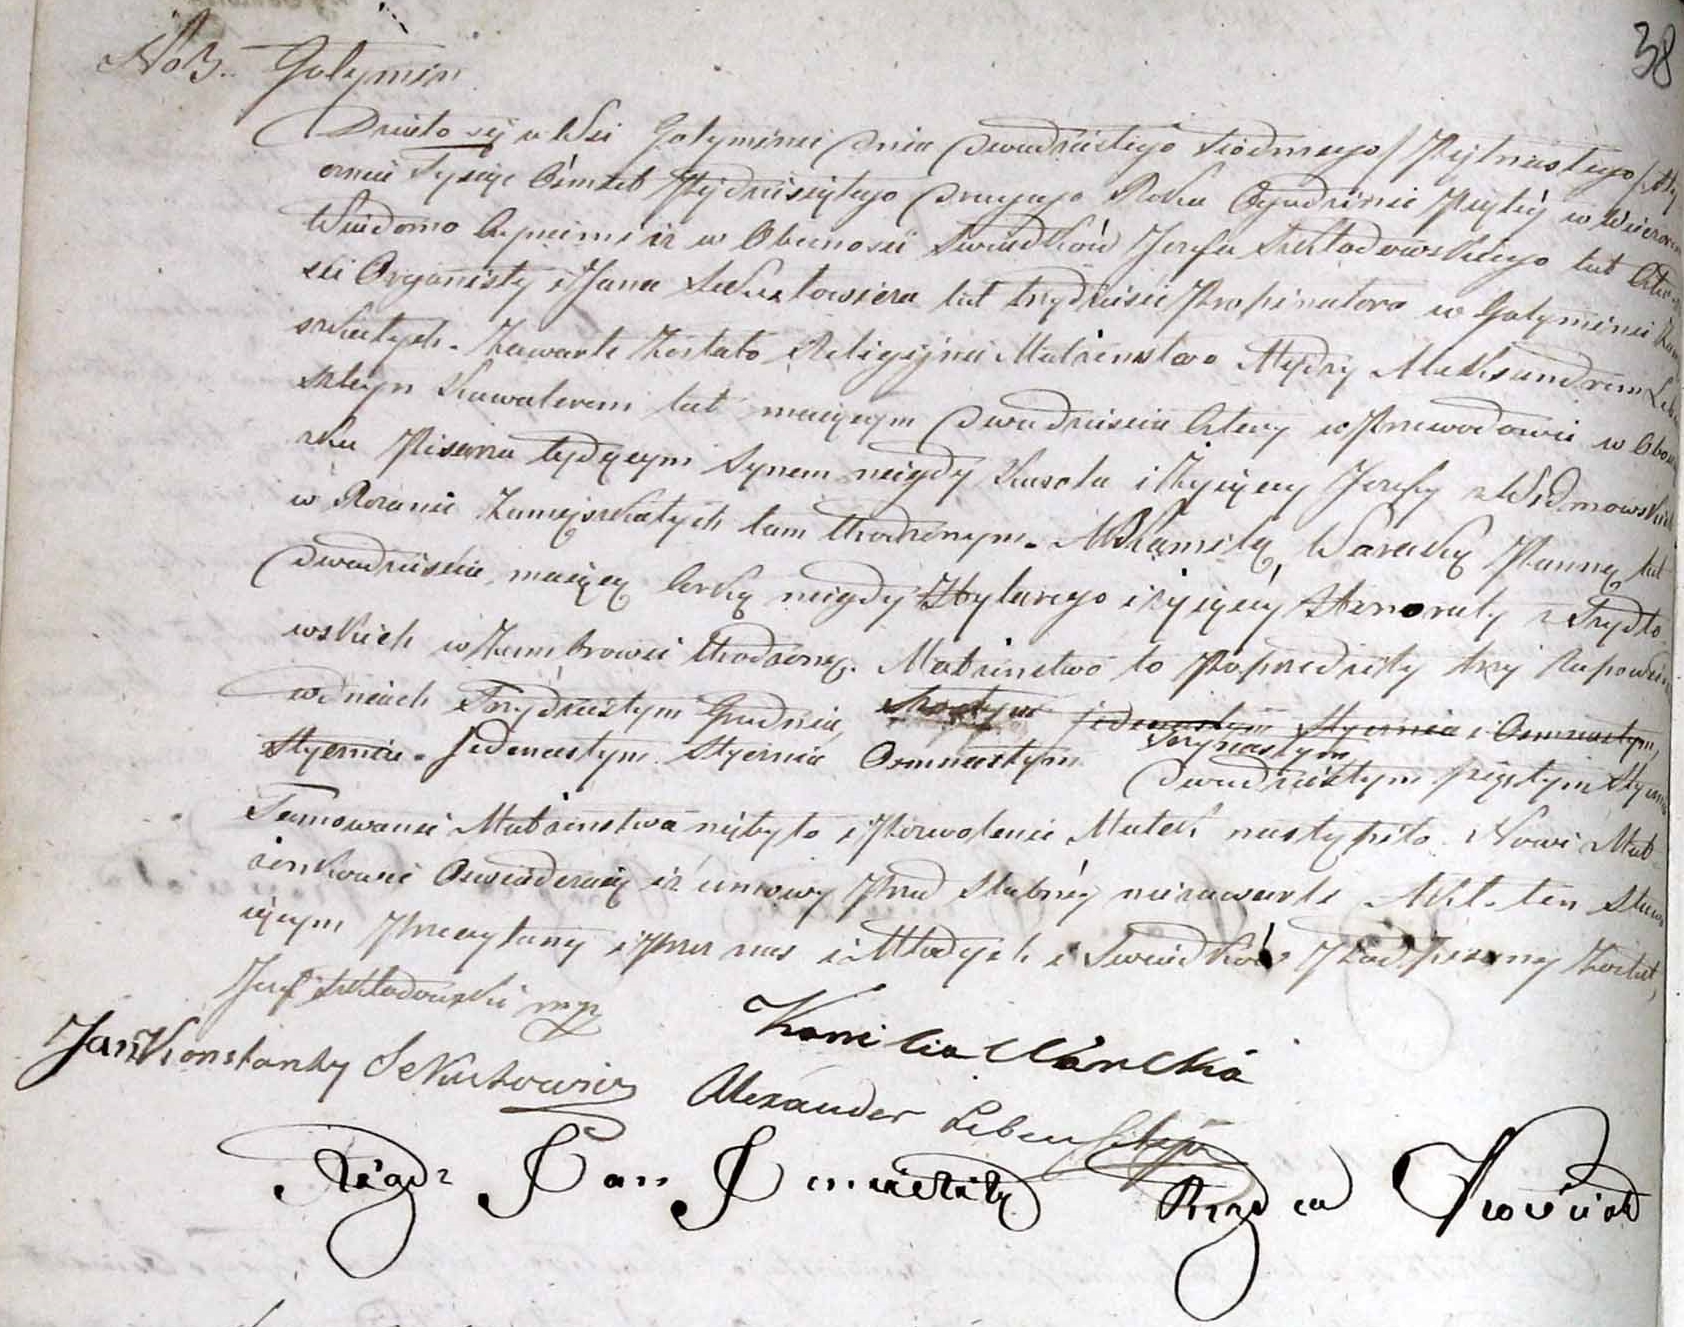 38
No 3. Gołymin
Działo się w Wsi Gołyminie dnia dwudziestego siódmego / Piętnastego /
cznia Tysiąc Ośmset Pięćdziesiątego drugiego Roku o godzinie Piątéj w Wieczor
Wiadomo Czyniemy iż w Obecności Świadków Józefa Skłodowskiego lat
Organisty i Jana Sekutowicza lat trzydzieści Propinatora w Gołyminie Zam
szkałych. Zawarte Zostało Religijne Małżeństwo Między Aleksandrem Lebe
sztejn Kawalerem lat mającym dwadzieścia Cztery w Przewodowie w Obow
zku Pisarza będącym Synem niegdy Karola i Żyjącey Józefy z Widmowskich
w Rożanie Zamieszkałych tam Urodzonym. A Kamilą Warecką Panną lat
dwadzieścia mającą Córką niegdy Hylarego i żyjącéy Honoraty z Trydło
wskich w Zambrowie Urodzoną. Małżeństwo to Poprzedziły trzy Zapowiedzi
w dniach Trzydziestym Grudnia, jedenastym Stycznia i Osmnastym,
Trzynastym
Stycznia. Jedenastym Stycznia Osmnastym dwudziestym piątym Stycznia
Tamowanie Małżeństwa niebyło i Pozwolenie Matek nastąpiło. Nowi Mał
żonkowie Oswiadczają iż umowy Przed Slubnéj niezawarli Akt ten Stawa
jącym Przeczytany i Przez nas i Młodych i Swiadków Podpisany Został,
Józef Skłodowski mp
Kamilia Warecka
Jan Konstanty Sekutowicz
Alexander Lebensztejn
Xiądz Jan Rządca Kościoła